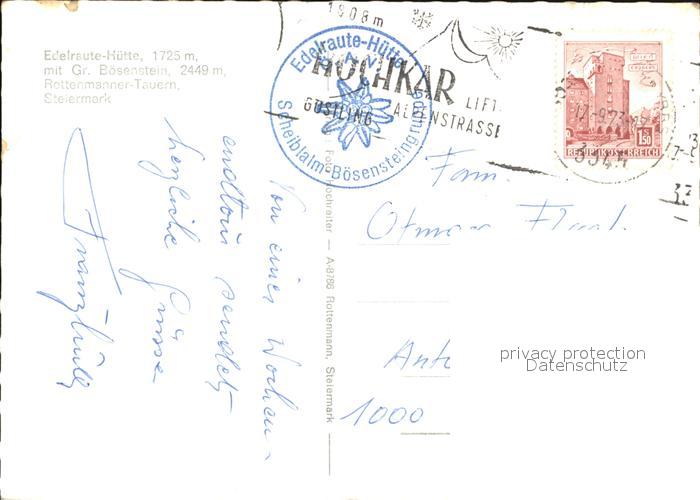 Edelraute-Hütte, 1725 m,
mit Gr. Bösenstein, 2449 m,
Rottenmanner-Tauern,
Steiermark
1808m
HOCHKAR
LIFT.
GÖSTLING ALPENSTRASSE
Edelraute-Hütte
Scheiblalm-Bösensteingrund
REPUBLIK ÖSTERREICH
1.50
3344
Von einer Wochen-
endtour sendet
herzliche Grüsse
Hochreiter — A-8786 Rottenmann, Steiermark
Fam.
Otmar
1000
privacy protection
Datenschutz